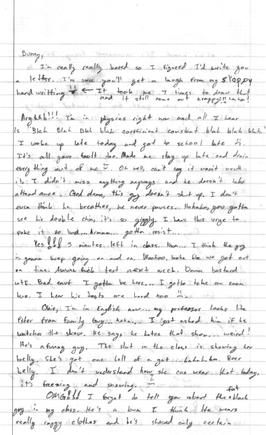 Bunny,
I'm really really bored so I figured I'd write you
a letter. I'm sure you'll get a laugh from my sloppy
hand writting It took me 7 times to draw that
and it still came out crappy!!
Arghhh!!! I'm in physics right now and all I hear
is Blah Blah Blah blah coefficient constant blah blah blah
I woke up late today and got to school late
It's all your fault. Made me stay up late and drain
every thing out of me Oh well, can't say it wasn't worth
it. I didn't miss anything anyways and he doesn't take
attendance. God damn, this guy doesn't shut up. I don't
even think he breathes, he never pauses. Hahaha, you gotta
see his double chin, it's so jiggly. I have this urge to
poke it so bad... gotta resist...
Yes!!! 5 minutes left in class. I think the guy
is gonna keep going on and on.
on time. test next week. Damn bastard
I gotta be here... I gotta take an exam
here. I hear his tests are hard too
Okay, I'm in English now... my professor looks like
Peter from Family Guy... I just asked him if he
watches that show. He says he hates that show... weird!
He's a funny guy. The slut in the class is showing her
belly. She's got one hell of a gut... hahahha. Beer
belly. I don't understand how she can wear that today.
It's freezing and snowing.
OMG!!! I forgot to tell you about the fat black
guy in my class. He's a bum I think. He wears
really raggy clothes and he's shaved only certain